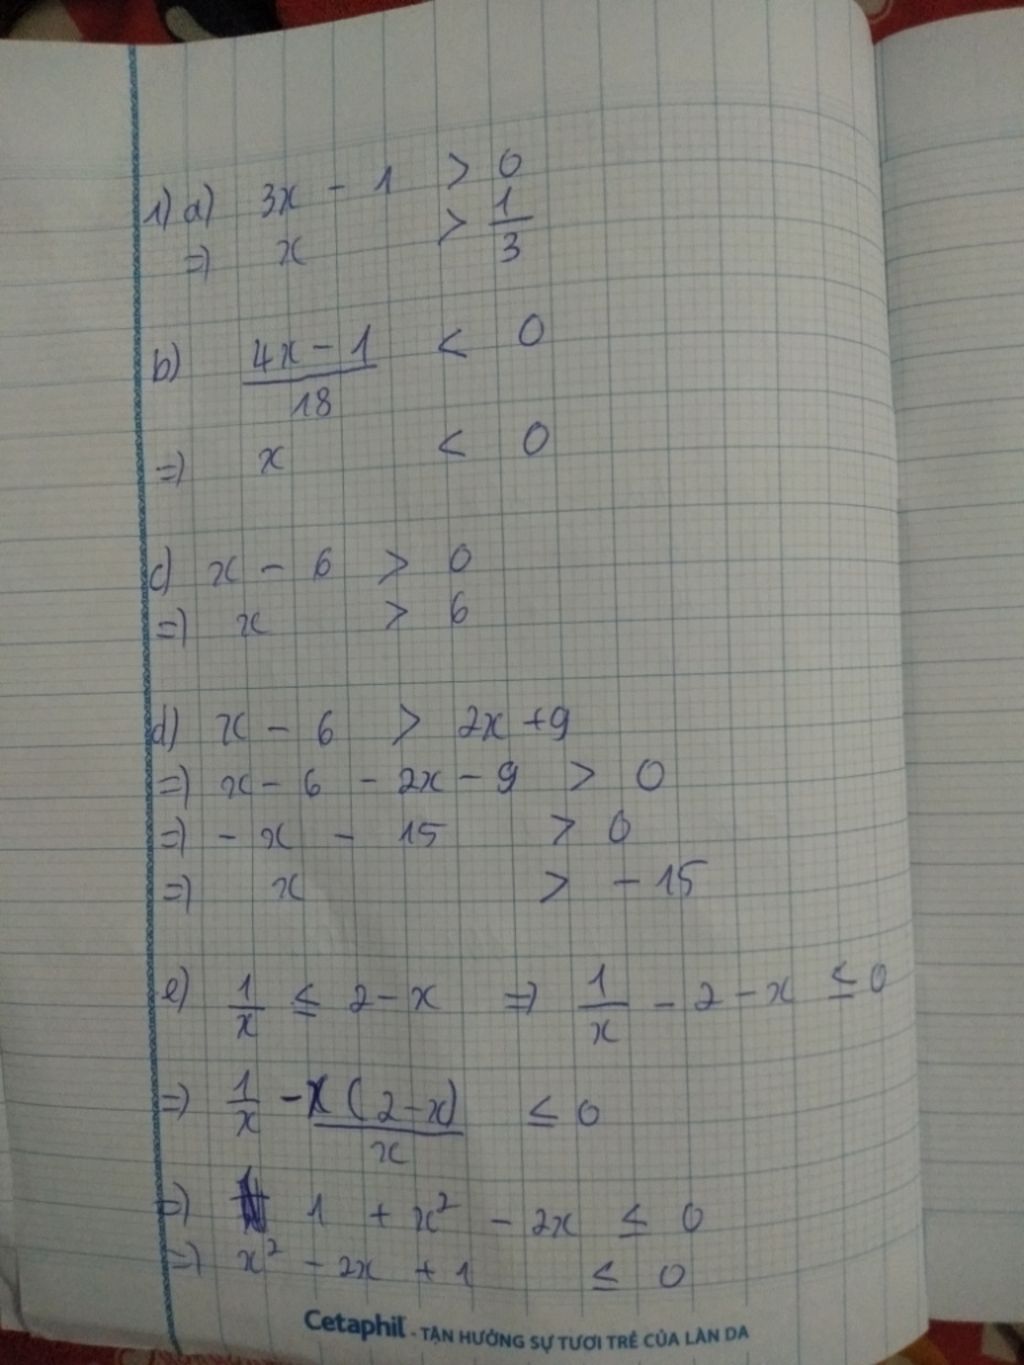 1) a) 3x - 1 > 0
=) x > 1/3
b) (4x - 1)/18 < 0
=) x < 0
c) x - 6 > 0
=) x > 6
d) x - 6 > 2x + 9
=) x - 6 - 2x - 9 > 0
=) - x - 15 > 0
=) x > - 15
e) 1/x ≤ 2 - x =) 1/x - 2 - x ≤ 0
=) 1/x - x(2 - x)/x ≤ 0
=) 1 + x² - 2x ≤ 0
=) x² - 2x + 1 ≤ 0
Cetaphil - TẬN HƯỞNG SỰ TƯƠI TRẺ CỦA LÀN DA